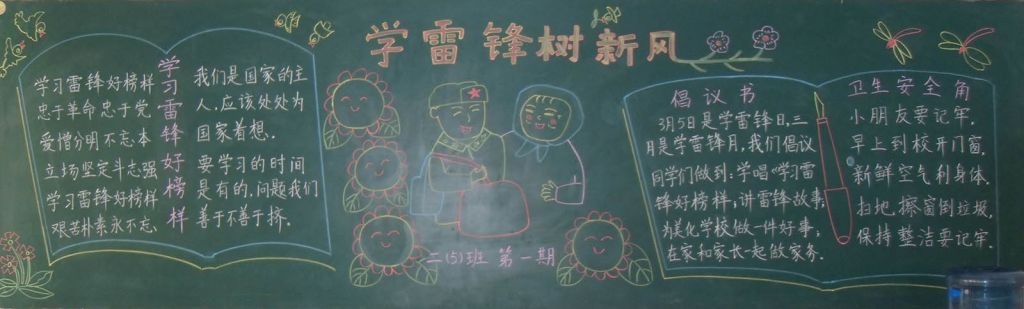 学雷锋树新风
学习雷锋好榜样
忠于革命忠于党
爱憎分明不忘本
立场坚定斗志强
学习雷锋好榜样
艰苦朴素永不忘、
学习雷锋好榜样
我们是国家的主
人,应该处处为
国家着想。
要学习的时间
是有的,问题我们
善于不善于挤。
二(5)班 第一期
倡议书
3月5日是学雷锋日,三
月是学雷锋月,我们倡议
同学们做到:学唱《学习雷
锋好榜样;讲雷锋故事;
为美化学校做一件好事;
在家和家长一起做家务。
卫生安全角
小朋友要记牢,
早上到校开门窗,
新鲜空气利身体.
扫地擦窗倒垃圾,
保持整洁要记牢.